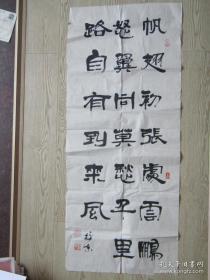 帆翅初張處雲鵬
怒翼同莫愁千里
路自有到來風